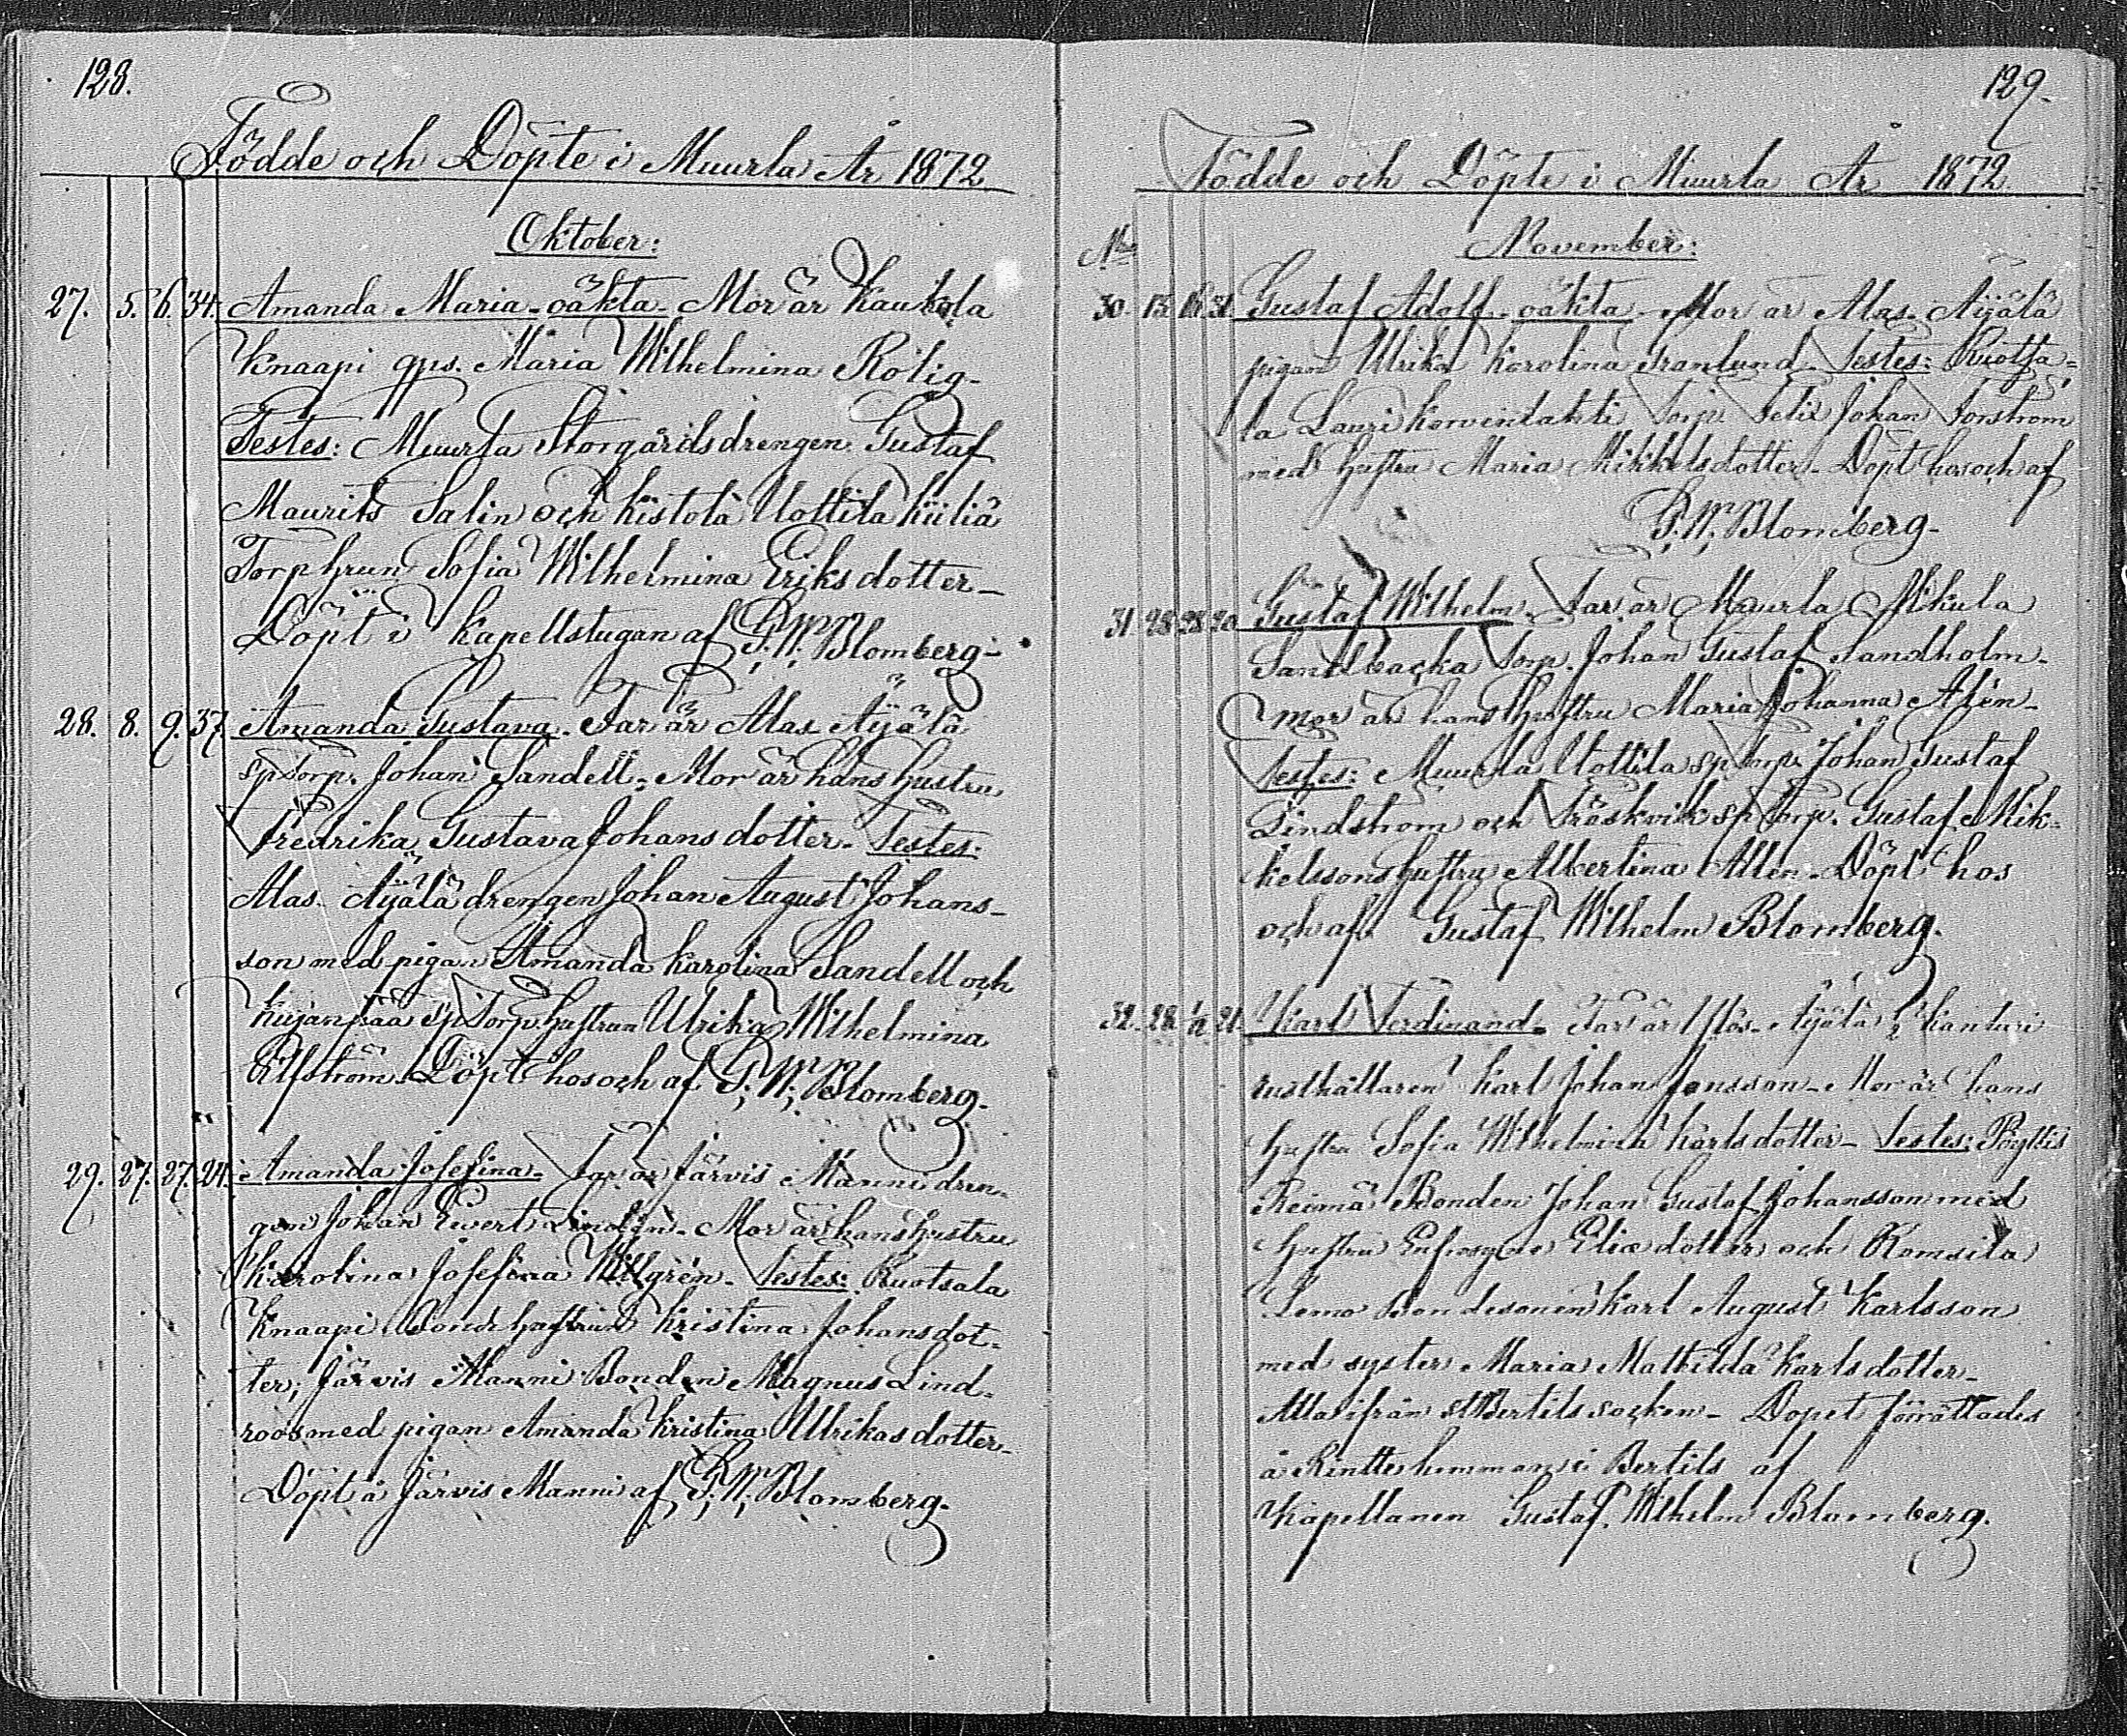 128.
Födde och Döpte i Muurla År 1872
Oktober:
27. 5. 6. 34. Amanda Maria - oäkta - Mor är Kaukola
Knaapi gps. Maria Wilhelmina Rolig-
Testes: Muurla Storgårds drengen Gustaf
Maurits Salin och Kistola Uottila Kiiliä
Torp hrun Sofia Wilhelmina Eriksdotter-
Döpt i Kapellstugan af G: W: Blomberg-
28. 8. 9. 37. Amanda Gustava. Far är Alas Äijälä
sp torp. Johan Sandell - Mor är hans hustru
Fredrika Gustava Johansdotter - Testes:
Alas Äijälä drengen Johan August Johans-
son med pigan Amanda Karolina Sandell och
sp Torp. hustrun Ulrika Wilhelmina
Elfström - Döpt hos och af G: W: Blomberg-
29. 27. 27. 24. Amanda Josefina - Far är Järvis Manni dren-
gen Johan Evert - Mor är hans hustru
Karolina Josefina Willgrén - Testes: Ruotsala
Knaapi Bonde hustrun Kristina Johansdot-
ter; Järvis Manni Bonden Magnus Lind-
roos med pigan Amanda Kristina Ulrikasdotter-
Döpt å Järvis Manni af G: W: Blomberg-
129.
Födde och Döpte i Muurla År 1872
Nro November:
30. 15. 16. 31. Gustaf Adolf - oäkta - Mor är Alas Äijälä
pigan Ulrika Karolina Granlund - Testes: Ruotsa-
la Lauri Korvenlahti Torp. Felix Johan Forström
med hustru Maria Mikkelsdotter - Döpt hos och af
G: W: Blomberg-
31. 28. 28. 20. Gustaf Wilhelm - Far är Muurla Mikula
Sandbacka Torp. Johan Gustaf Sandholm-
mor är hans hustru Maria Johanna Alén-
Testes: Muurla Uottila sp torp. Johan Gustaf
Lindström och Träskvik sp torp. Gustaf Mik-
kelssons hustru Albertina Allén - Döpt hos
och af Gustaf Wilhelm Blomberg.
32. 28. 1/12 21. Karl Ferdinand - Far är Äijälä Kanturi
rusthållaren Karl Johan Jonsson - Mor är hans
hustru Sofia Wilhelmina Karlsdotter - Testes: Pöytiö
Reimä Bonden Johan Gustaf Johansson med
hustru Eufrosyne Eliædotter och Romsila
Lemo Bondesonen Karl August Karlsson
med syster Maria Mathilda Karlsdotter-
Alla ifrån St Bertils socken - Dopet förrättades
å hemman i Bertils af
Kapellanen Gustaf Wilhelm Blomberg.